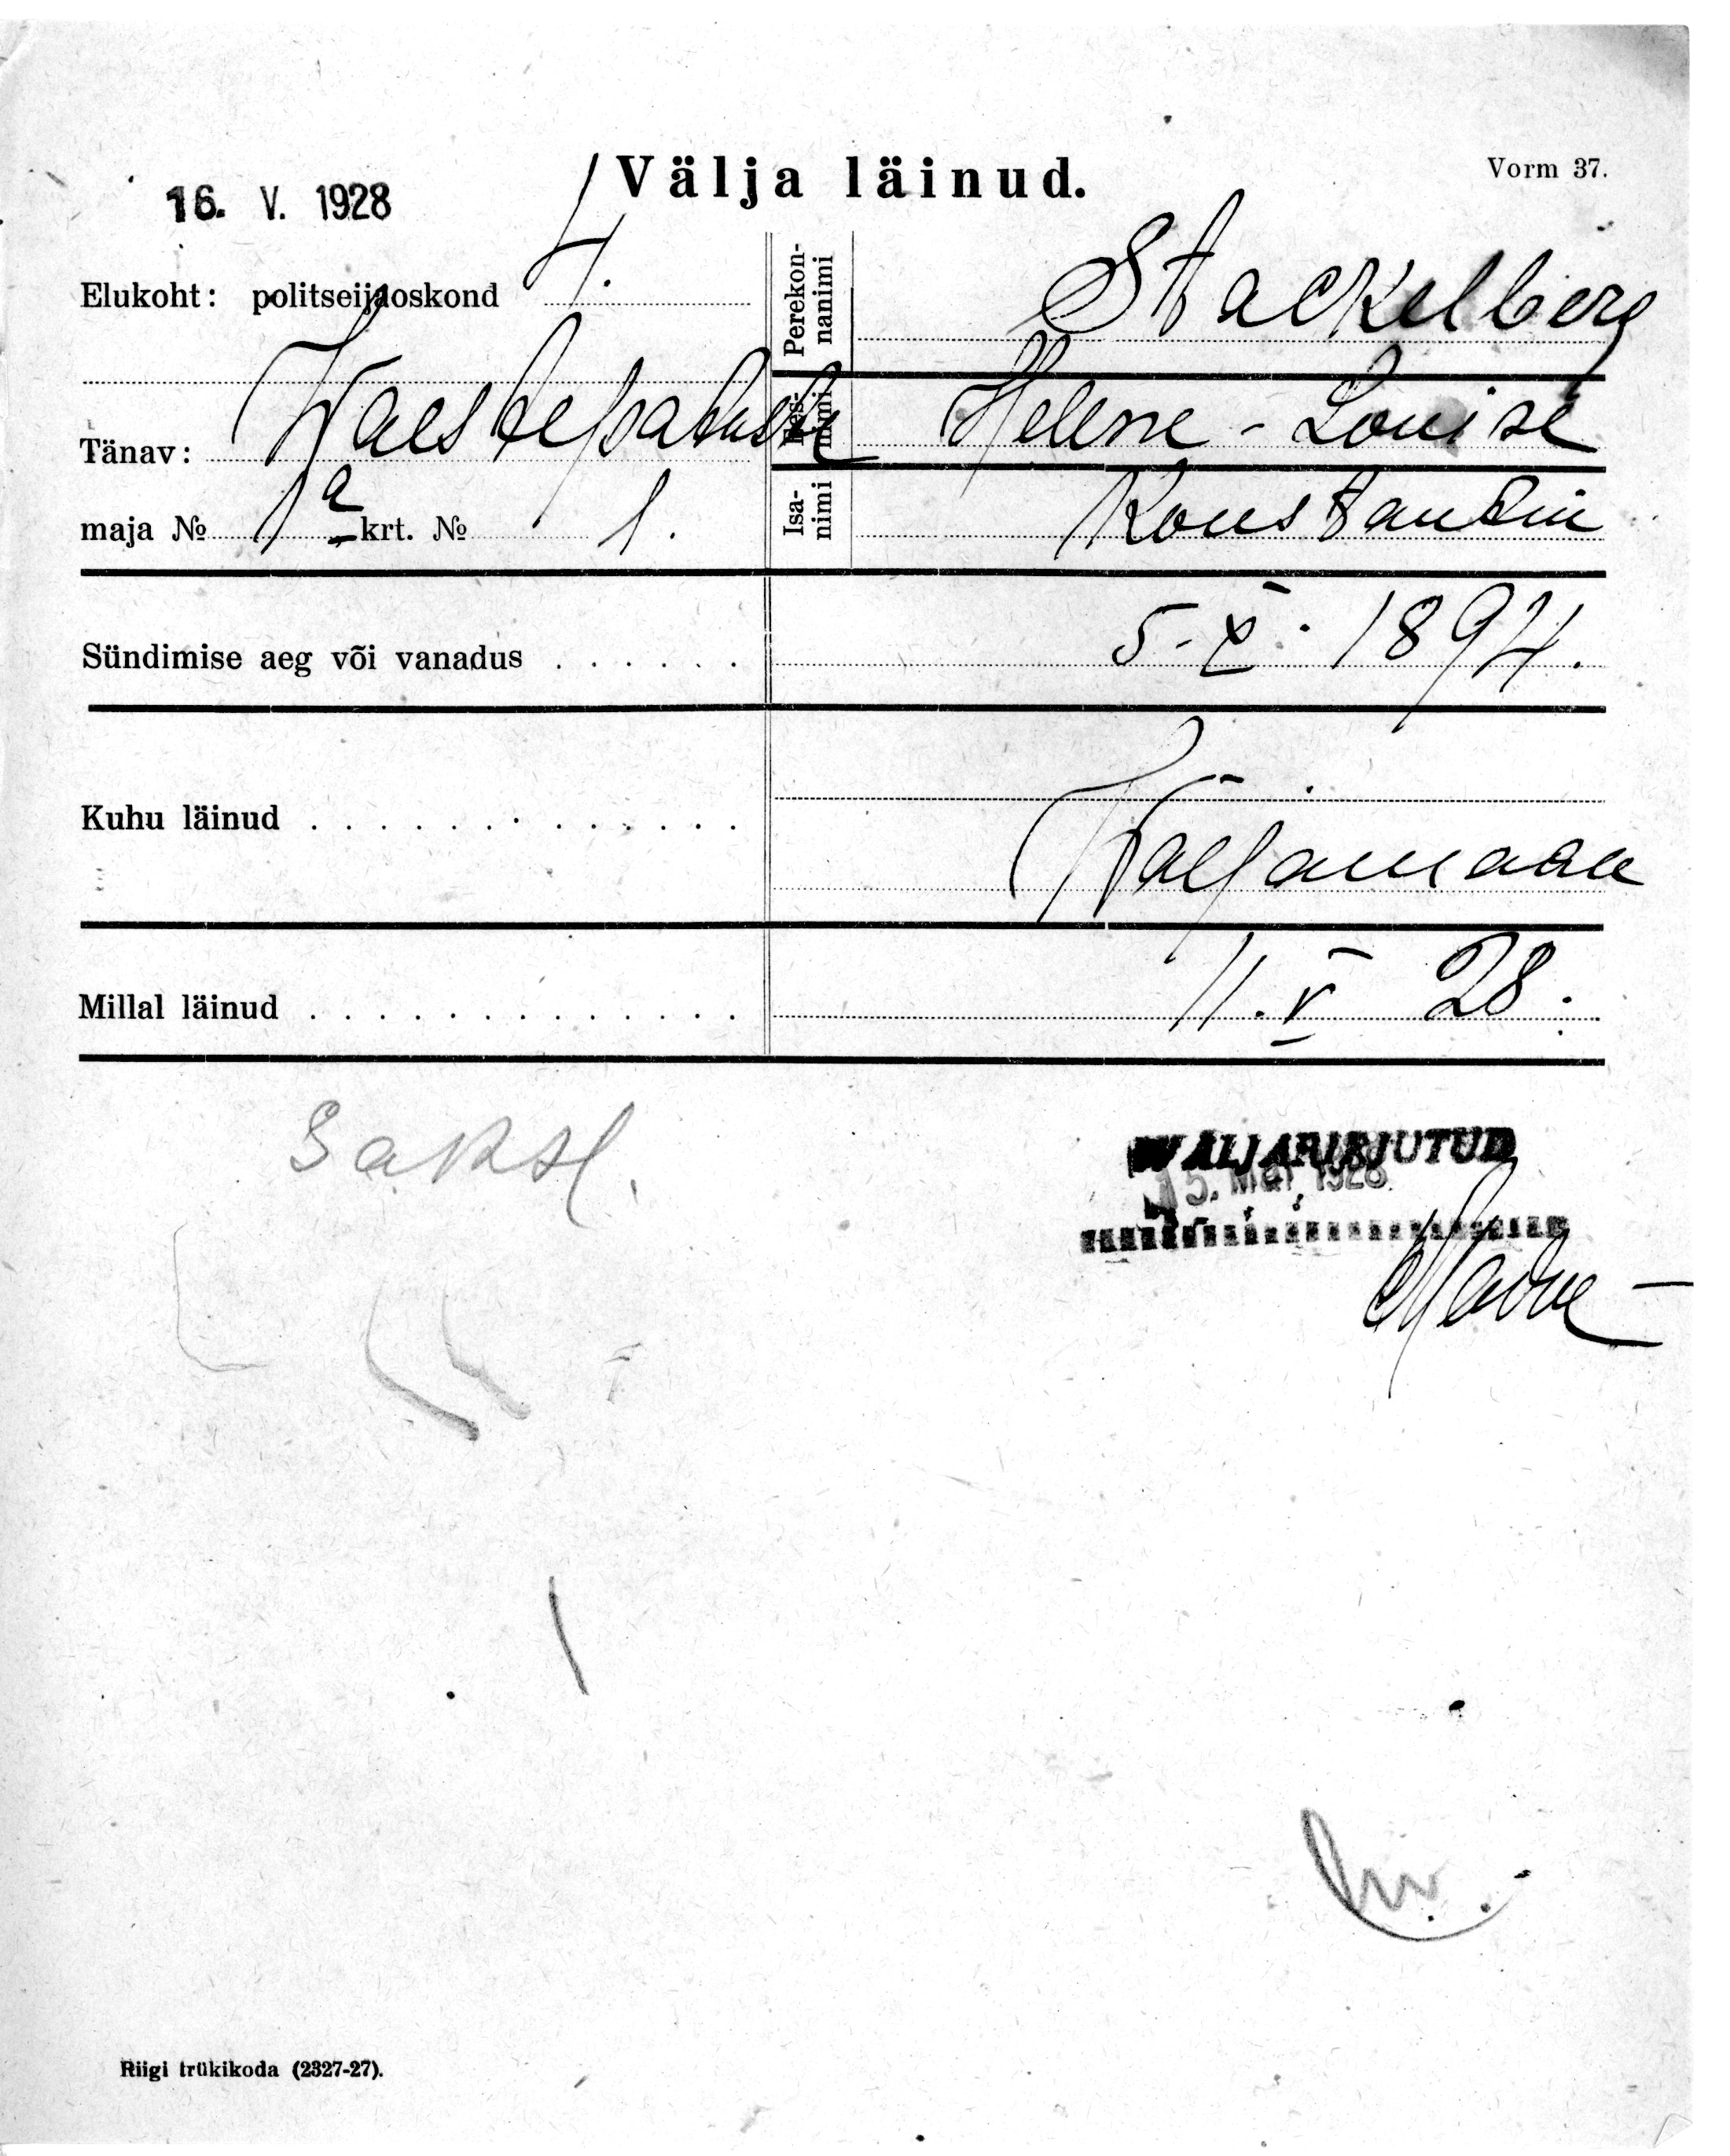 Vorm 37.
16. V. 1928
Välja läinud.
Elukoht: politseijaoskond 4.
Tänav:
maja № 1a krt. № 1.
Perekonnanimi Stackelberg
Eesnimi Helene-Louise
Isanimi Konstantin
Sündimise aeg või vanadus . . . . . . 5. X. 1894.
Kuhu läinud . . . . . . . . . . . . . Wäljamaale
Millal läinud . . . . . . . . . . . . . 11. V 28.
Saksl.
WÄLJAKIRJUTUD
15. MAI 1928
Riigi trükikoda (2327-27).